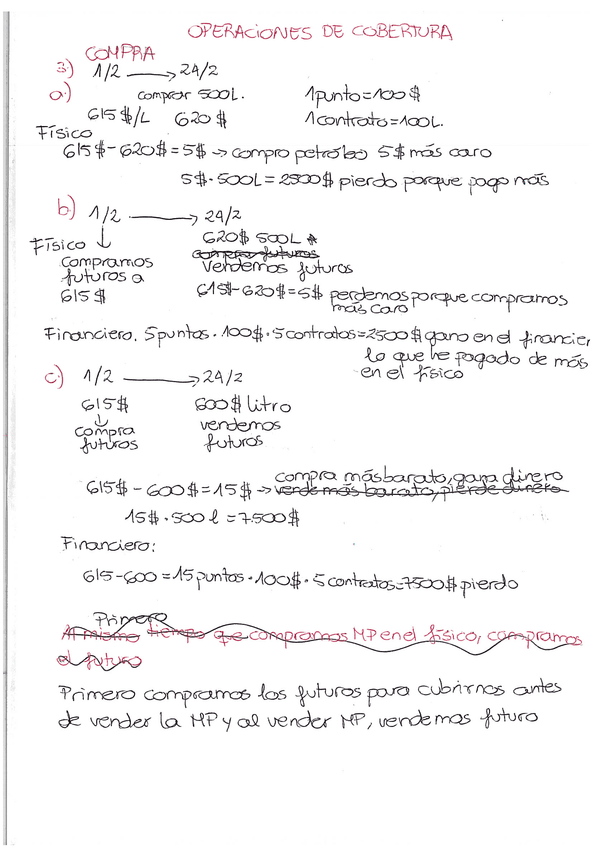 OPERACIONES DE COBERTURA
COMPRA
3) 1/2 → 24/2
a) comprar 500L. 1 punto = 100 $
615 $/L 620 $ 1 contrato = 100L.
Físico
615$ - 620$ = 5$ → compro petróleo 5$ más caro
5$ · 500L = 2500$ pierdo porque pago más
b) 1/2 → 24/2
Físico ↓ 620$ 500L
comprar futuros
compramos vendemos futuros
futuros a
615 $ 615$ - 620$ = 5$ perdemos porque compramos
más caro
Financiero. 5 puntos · 100$ · 5 contratos = 2500 $ gano en el financier
lo que he pagado de más
en el físico
c) 1/2 → 24/2
615$ 600$ litro
↓
compra vendemos
futuros futuros
compra más barato, gana dinero
615$ - 600$ = 15$ → vende más barato, pierde dinero
15$ · 500 l = 7500$
Financiero:
615 - 600 = 15 puntos · 100$ · 5 contratos = 7500$ pierdo
Primero
Al mismo tiempo que compramos MP en el físico, compramos
el futuro
Primero compramos los futuros para cubrirnos antes
de vender la MP y al vender MP, vendemos futuro